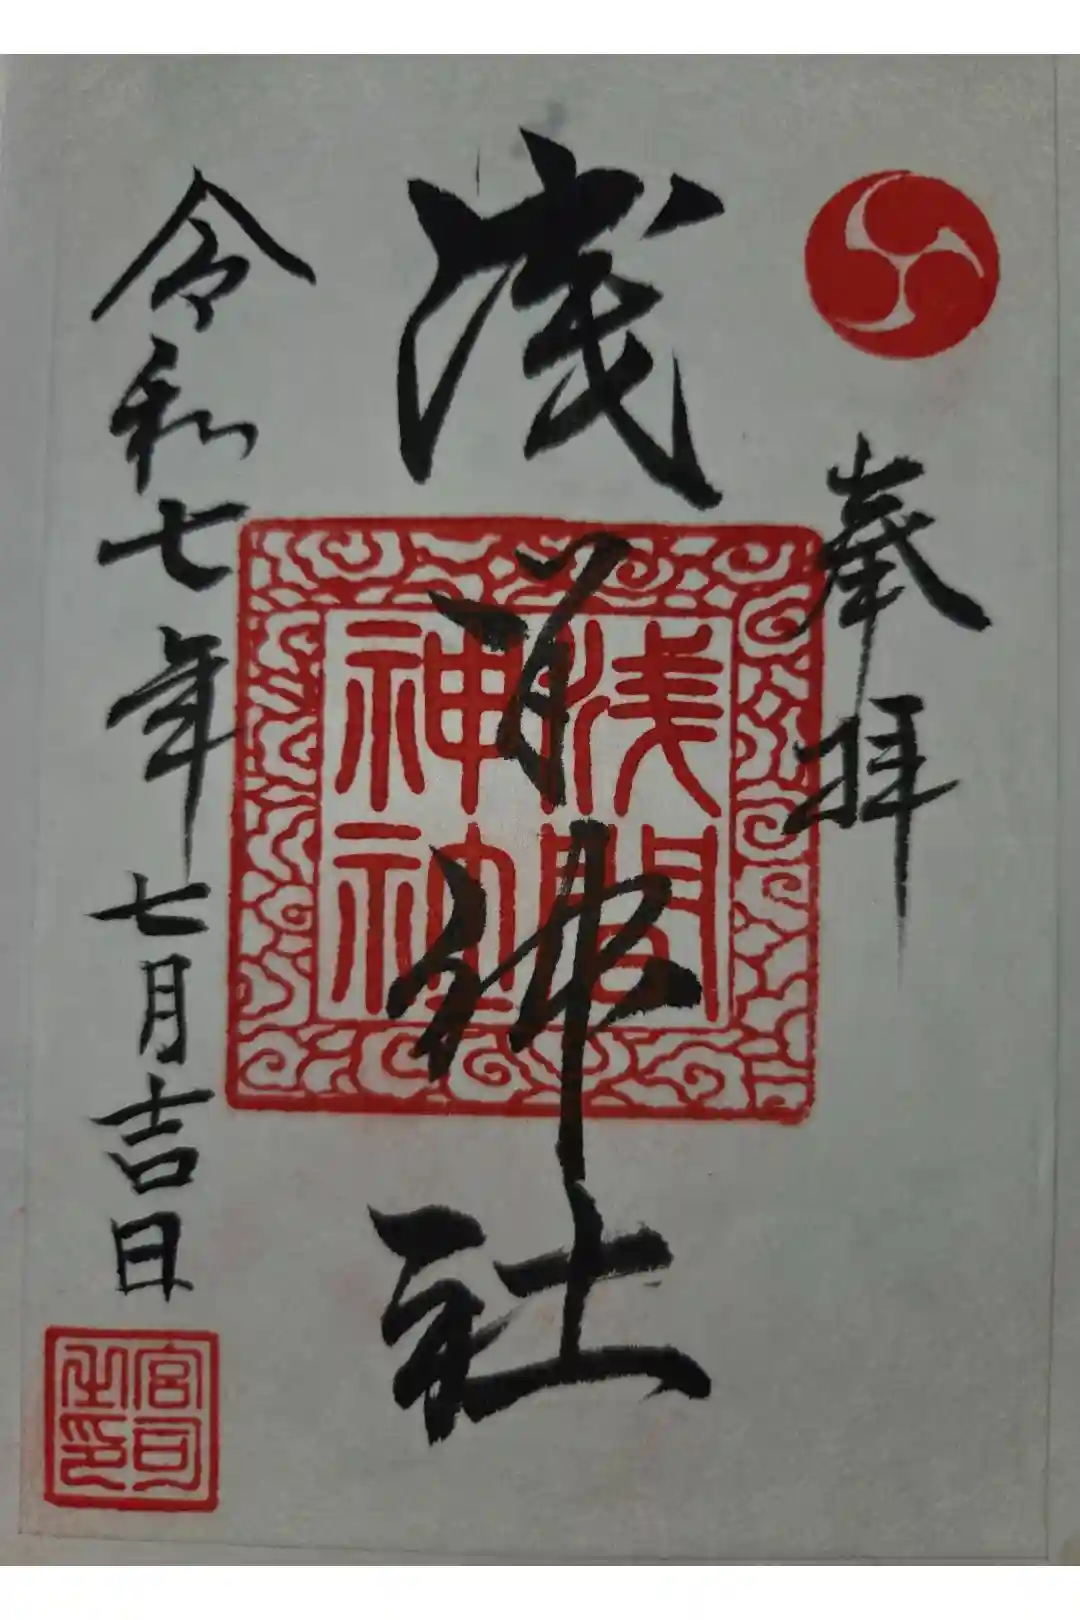 奉拝
浅間神社
浅間
神社
令和七年七月吉日
宮司
之印